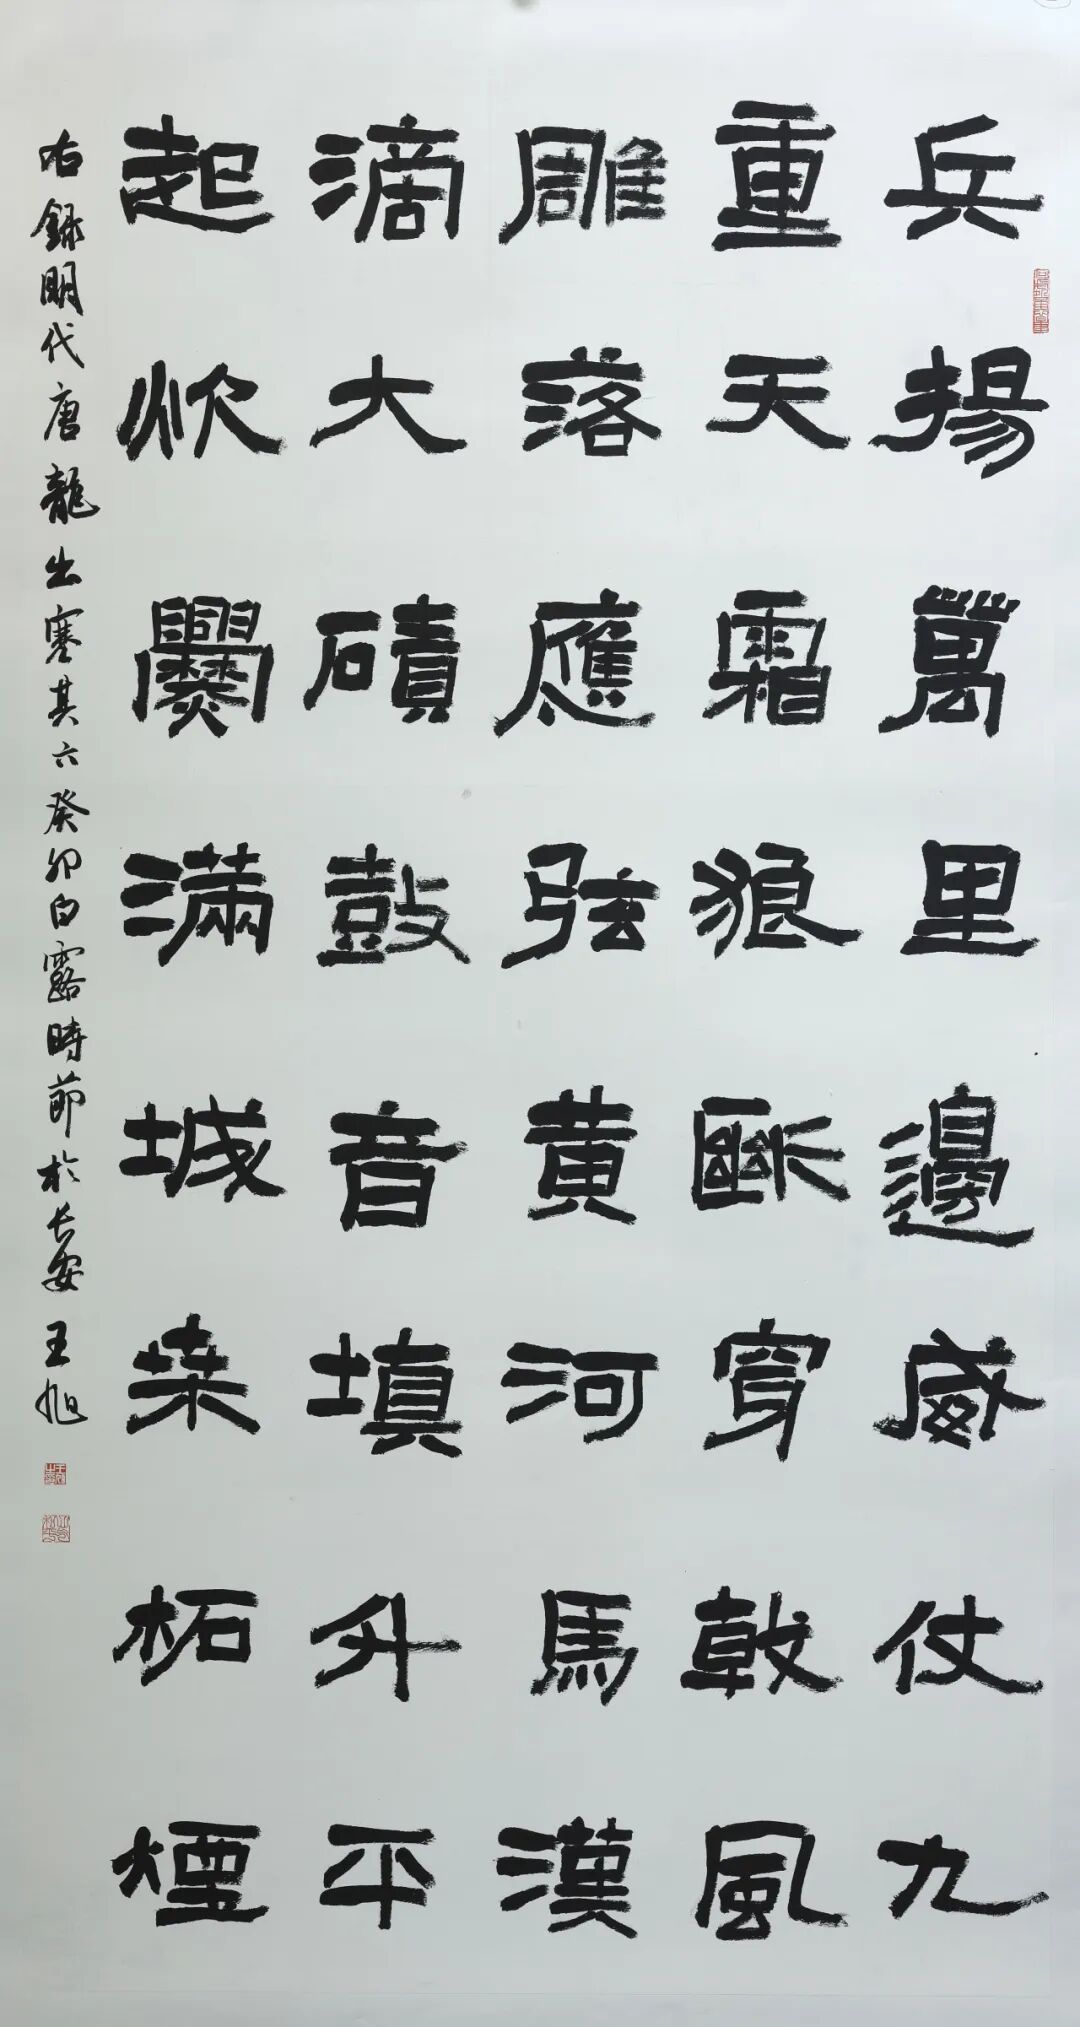 兵揚萬里邊威仗九
重天霜狼穿風
雕落應弦黄河馬漢
滴大磧鼓音填升平
起炊爨滿城桒柘煙
右録明代唐龍出塞其六癸卯白露時節於长安王旭